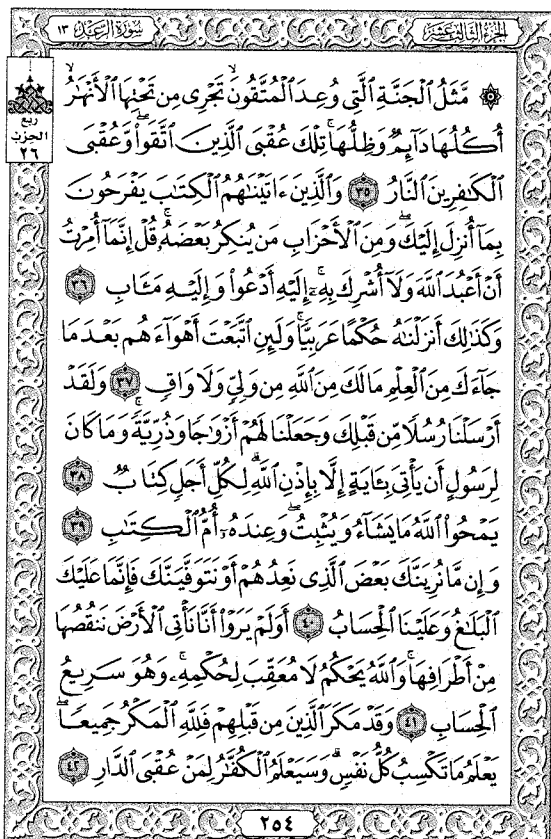 الجزء الثالث عشر
سورة الرعد ١٣
ربع
الحزب
٢٦
۞ مَّثَلُ ٱلْجَنَّةِ ٱلَّتِى وُعِدَ ٱلْمُتَّقُونَ ۖ تَجْرِى مِن تَحْتِهَا ٱلْأَنْهَٰرُ ۖ
أُكُلُهَا دَآئِمٌ وَظِلُّهَا ۚ تِلْكَ عُقْبَى ٱلَّذِينَ ٱتَّقَوا۟ ۖ وَّعُقْبَى
ٱلْكَٰفِرِينَ ٱلنَّارُ ٣٥ وَٱلَّذِينَ ءَاتَيْنَٰهُمُ ٱلْكِتَٰبَ يَفْرَحُونَ
بِمَآ أُنزِلَ إِلَيْكَ ۖ وَمِنَ ٱلْأَحْزَابِ مَن يُنكِرُ بَعْضَهُۥ ۚ قُلْ إِنَّمَآ أُمِرْتُ
أَنْ أَعْبُدَ ٱللَّهَ وَلَآ أُشْرِكَ بِهِۦٓ ۚ إِلَيْهِ أَدْعُوا۟ وَإِلَيْهِ مَـَٔابِ ٣٦
وَكَذَٰلِكَ أَنزَلْنَٰهُ حُكْمًا عَرَبِيًّا ۚ وَلَئِنِ ٱتَّبَعْتَ أَهْوَآءَهُم بَعْدَمَا
جَآءَكَ مِنَ ٱلْعِلْمِ مَالَكَ مِنَ ٱللَّهِ مِن وَلِىٍّ وَلَا وَاقٍ ٣٧ وَلَقَدْ
أَرْسَلْنَا رُسُلًا مِّن قَبْلِكَ وَجَعَلْنَا لَهُمْ أَزْوَٰجًا وَذُرِّيَّةً ۚ وَمَا كَانَ
لِرَسُولٍ أَن يَأْتِىَ بِـَٔايَةٍ إِلَّا بِإِذْنِ ٱللَّهِ ۗ لِكُلِّ أَجَلٍ كِتَابٌ ٣٨
يَمْحُوا۟ ٱللَّهُ مَا يَشَآءُ وَيُثْبِتُ ۖ وَعِندَهُۥٓ أُمُّ ٱلْكِتَٰبِ ٣٩
وَإِن مَّا نُرِيَنَّكَ بَعْضَ ٱلَّذِى نَعِدُهُمْ أَوْ نَتَوَفَّيَنَّكَ فَإِنَّمَا عَلَيْكَ
ٱلْبَلَٰغُ وَعَلَيْنَا ٱلْحِسَابُ ٤٠ أَوَلَمْ يَرَوْا۟ أَنَّا نَأْتِى ٱلْأَرْضَ نَنقُصُهَا
مِنْ أَطْرَافِهَا ۚ وَٱللَّهُ يَحْكُمُ لَا مُعَقِّبَ لِحُكْمِهِۦ ۚ وَهُوَ سَرِيعُ
ٱلْحِسَابِ ٤١ وَقَدْ مَكَرَ ٱلَّذِينَ مِن قَبْلِهِمْ فَلِلَّهِ ٱلْمَكْرُ جَمِيعًا ۖ
يَعْلَمُ مَا تَكْسِبُ كُلُّ نَفْسٍ ۗ وَسَيَعْلَمُ ٱلْكُفَّٰرُ لِمَنْ عُقْبَى ٱلدَّارِ ٤٢
٢٥٤